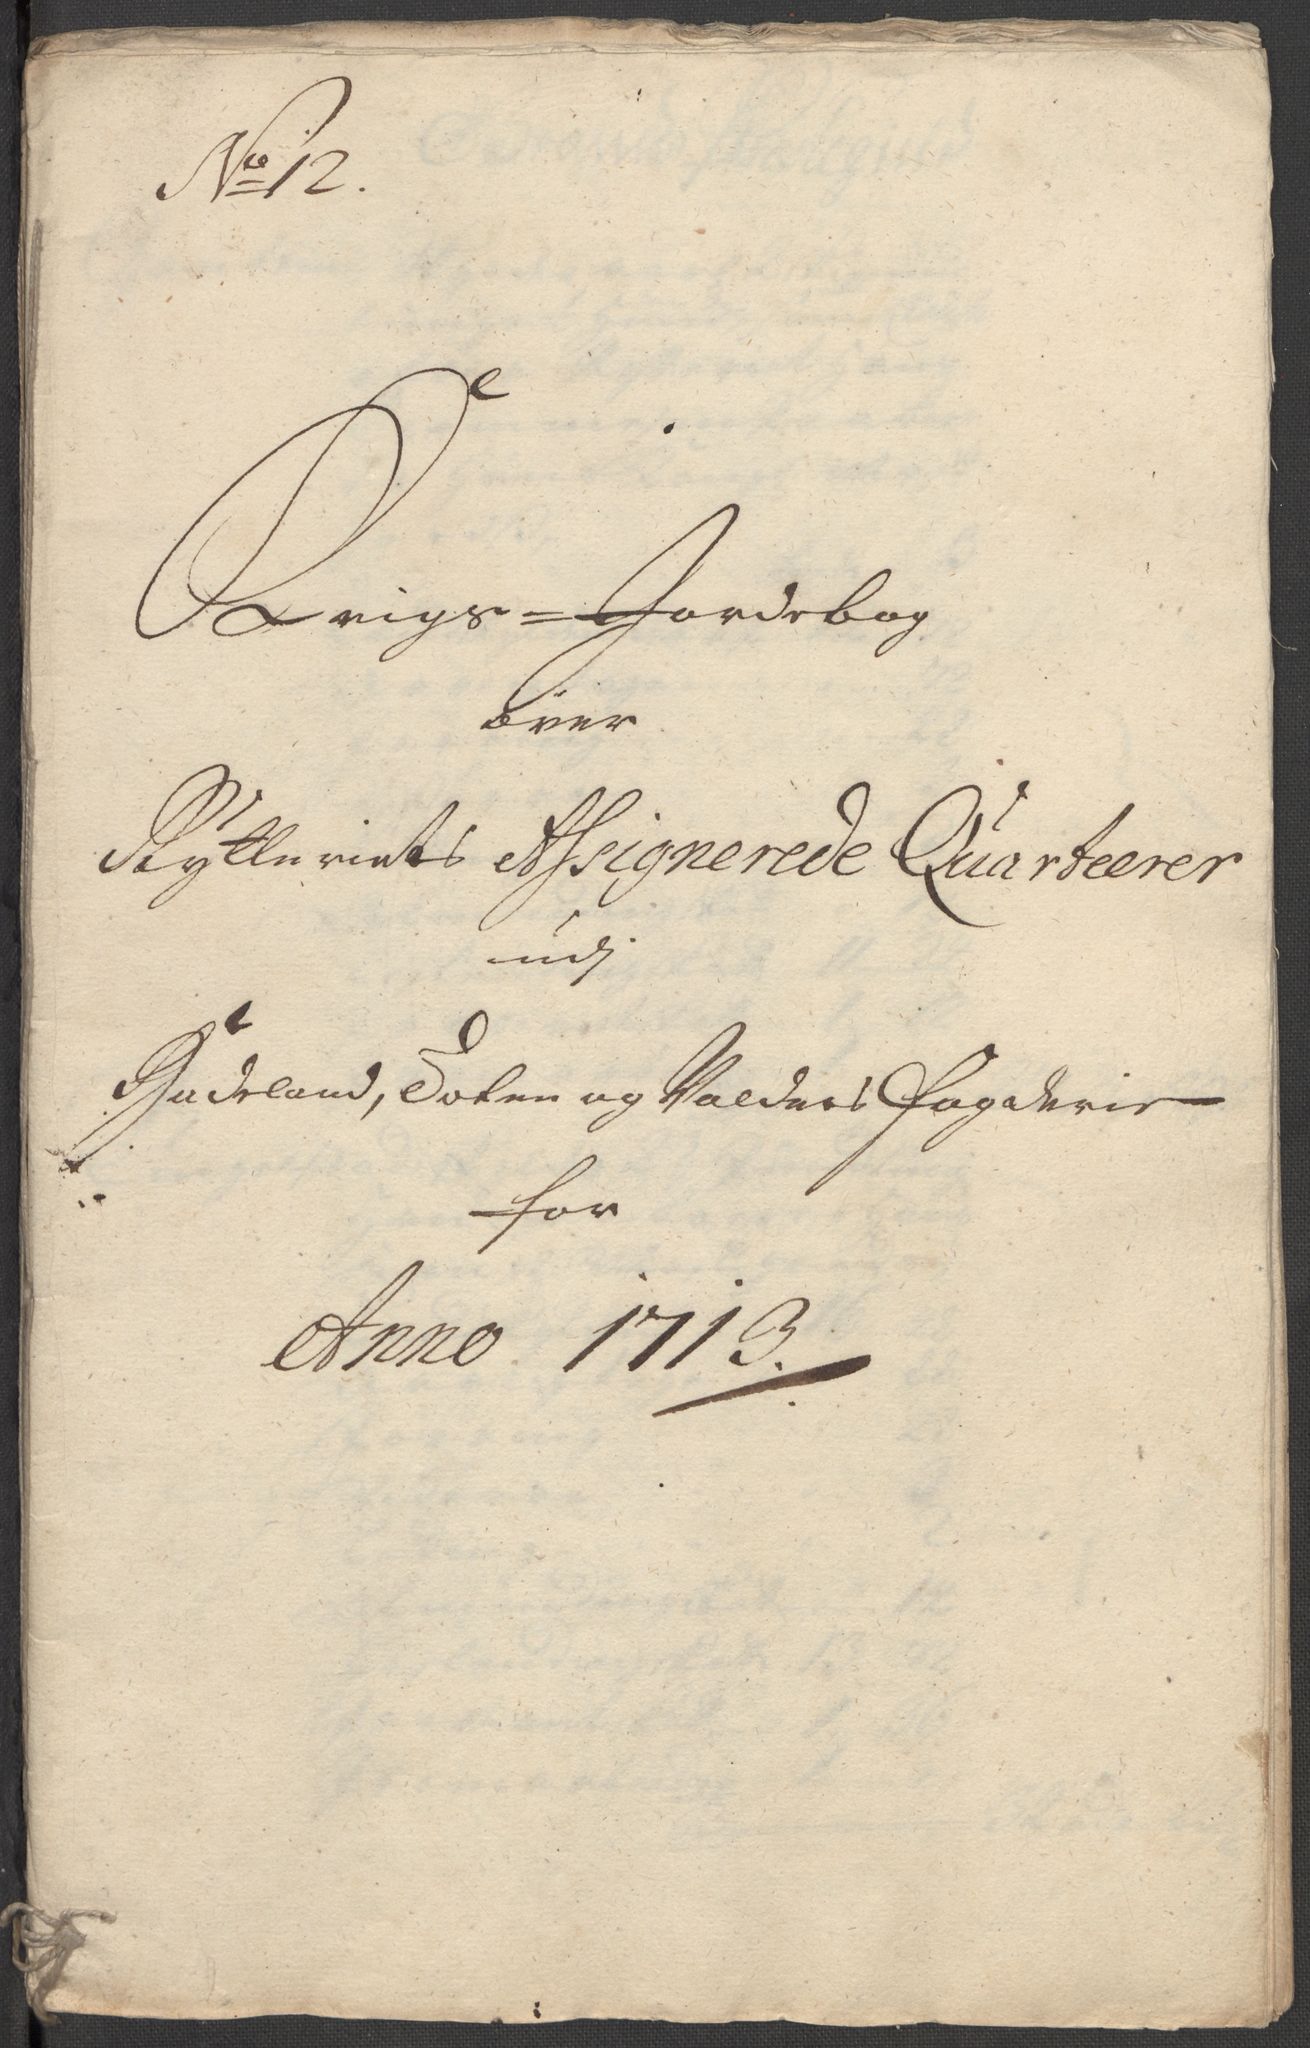 No 12.
Krigs=Jordebog
over
Rytteriets Assignerede Quarteerer
udj
Hadeland, Toten og Valders Fogderie
for
Anno 1713.